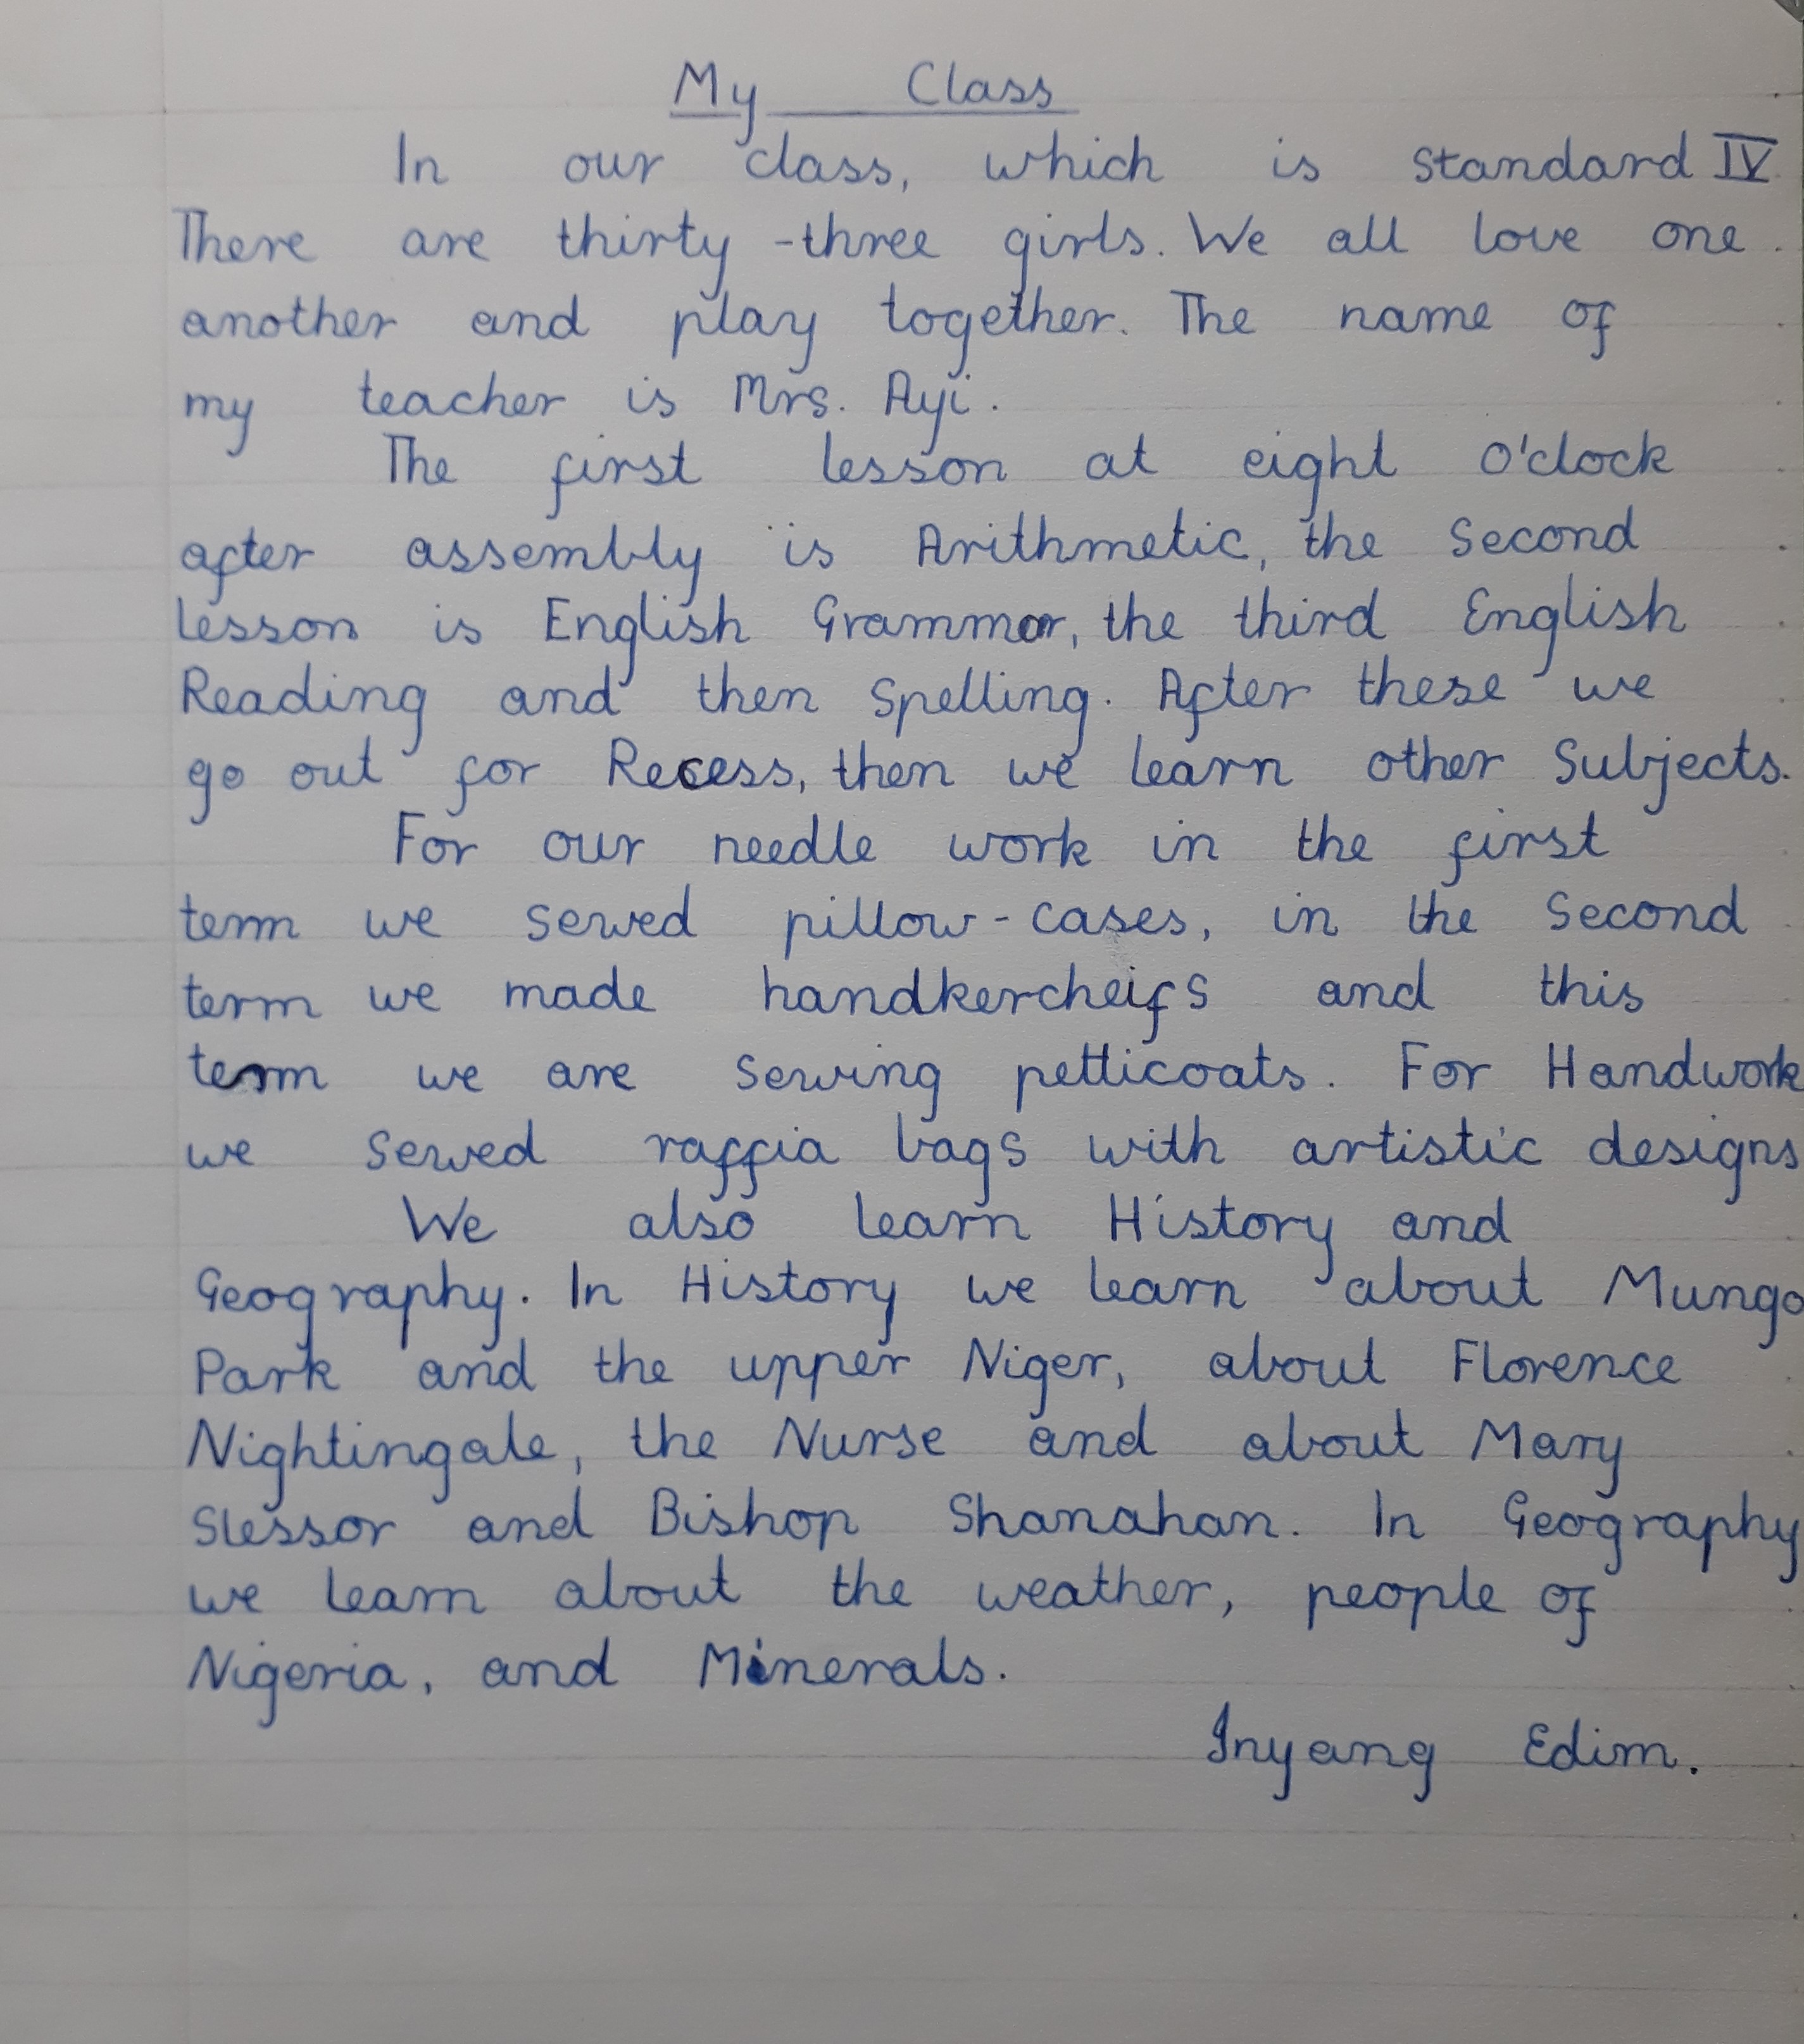 My Class
In our class, which is standard IV
There are thirty-three girls. We all love one
another and play together. The name of
my teacher is Mrs. Ayi.
The first lesson at eight o'clock
after assembly is Arithmetic, the Second
lesson is English Grammar, the third English
Reading and then Spelling. After these we
go out for Recess, then we learn other Subjects.
For our needle work in the first
term we sewed pillow-cases, in the Second
term we made handkercheifs and this
term we are sewing petticoats. For Handwork
we sewed raffia bags with artistic designs
We also learn History and
Geography. In History we learn about Mungo
Park and the upper Niger, about Florence
Nightingale, the Nurse and about Mary
Slessor and Bishop Shanahan. In Geography
we learn about the weather, people of
Nigeria, and Minerals.
Inyang Edim.